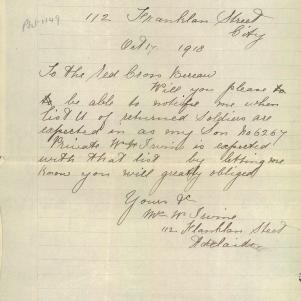 112 Franklin Street
City
Oct 17 1918
To the Red Cross Bureau
Will you please to
be able to notifie me when
list U of returned soldiers are
expected in as my Son No 6267
Private W H Irvine is expected
with that list by letting me
know you will greatly obliged
Yours &c
Mrs W Irvine
112 Franklin Street
Adelaide